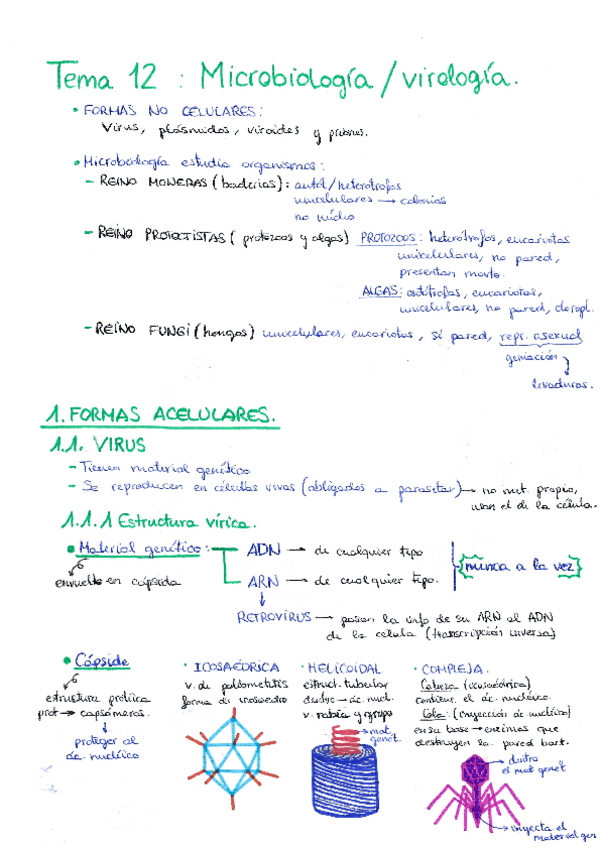 Tema 12 : Microbiología / virología.
• FORMAS NO CELULARES:
Virus, plásmidos, viroides y priones.
• Microbiología estudia organismos:
- REINO MONERAS (bacterias): autót/heterótrofas
unicelulares → colonias
no núcleo
- REINO PROTOCTISTAS (protozoos y algas) PROTOZOOS: heterótrofos, eucariotas
unicelulares, no pared,
presentan movto.
ALGAS: autótrofas, eucariotas,
unicelulares, no pared, cloropl.
- REINO FUNGI (hongos) unicelulares, eucariotas, sí pared, repr. asexual
gemación
levaduras.
1. FORMAS ACELULARES.
1.1. VIRUS
- Tienen material genético
- Se reproducen en células vivas (obligados a parasitar) → no met. propio,
usan el de la célula.
1.1.1 Estructura vírica.
• Material genético: ADN → de cualquier tipo
envuelto en cápsida ARN → de cualquier tipo. nunca a la vez
RETROVIRUS → pasan la info de su ARN al ADN
de la célula (transcripción inversa)
• Cápside
estructura protéica
prot → capsómeras.
proteger al
ác. nucléico
· ICOSAÉDRICA
v. de poliomelitis
forma de icosaedro
· HELICOIDAL
estruct. tubular
dentro → ác. nucl.
v. rabia y gripe
mat.
genét.
· COMPLEJA.
Cabeza (icosaédrica)
contiene el ác. nucléico.
Cola: (inyección ác. nucléico)
en su base → enzimas que
destruyen la pared bact.
dentro
el mat genét
inyecta el
material gen